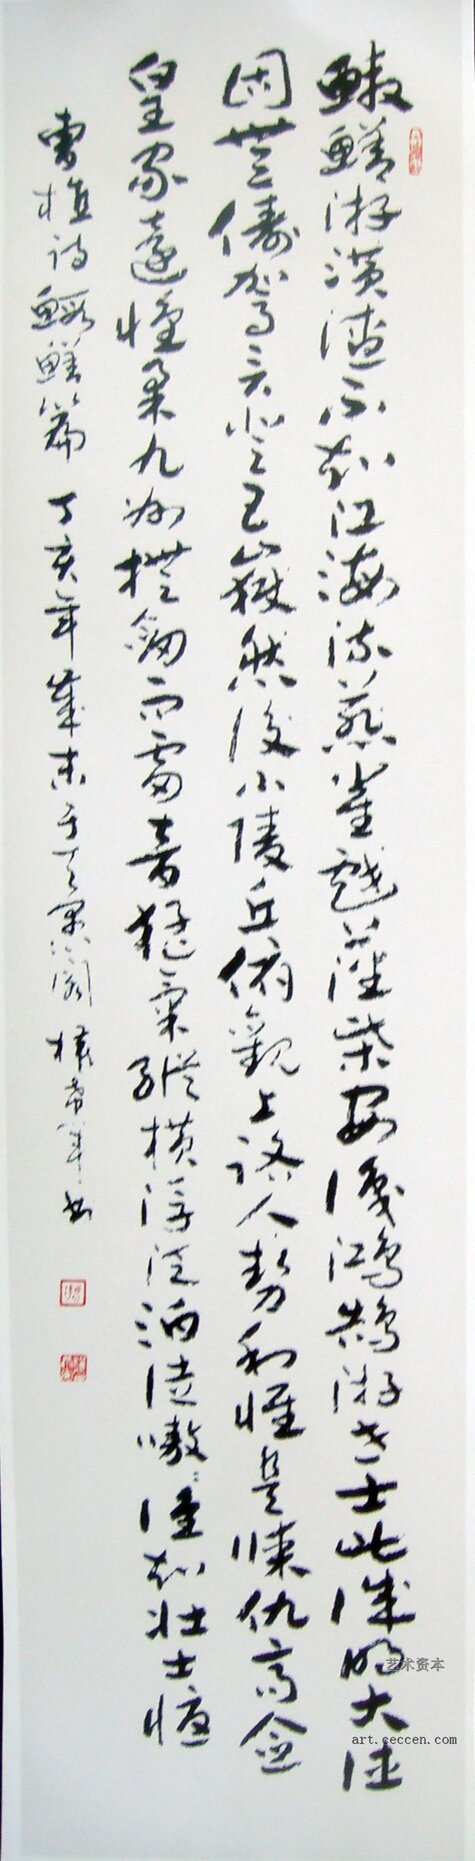 鰕鱔游潢潦不知江海流燕雀戲藩柴安識鴻鵠游世士此誠明大德
固無儔駕言登五嶽然後小陵丘俯觀上路人勢利惟是謀仇高念
皇家遠懷柔九州撫劍而雷音猛氣縱橫浮泛泊徒嗷嗷誰知壯士憂
曹植诗鰕鱔篇 丁亥年歲末于 阁 书
艺术资本
art.ceccen.com